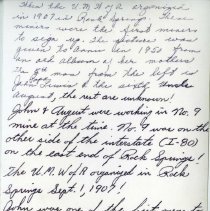 When the U.M.W of A organized
in 1907 in Rock Springs. These
miners were the first miners
to sign up. The picture was
given to Annie in 1950 from
an old album of her mothers
The 5th man from the left is
John & the sixth Uncle
August, the rest are unknown!
John & August were working in No. 9
mine at the time. No. 9 was on the
other side of the interstate (I-80)
on the east end of Rock Springs!
The U.M.W of A organized in Rock
Springs Sept. 1, 1907!
John was one of the first men to